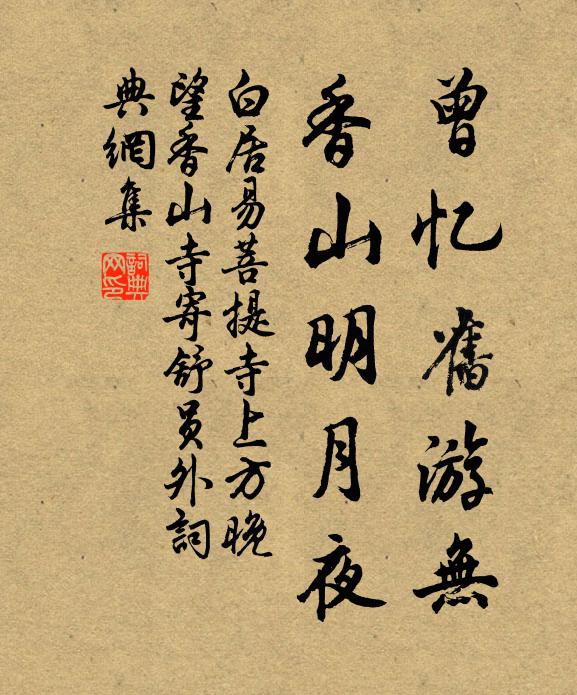 曾忆舊游無
香山明月夜
白居易菩提寺上方晚
望香山寺寄舒員外詞
典網集
詞典网印